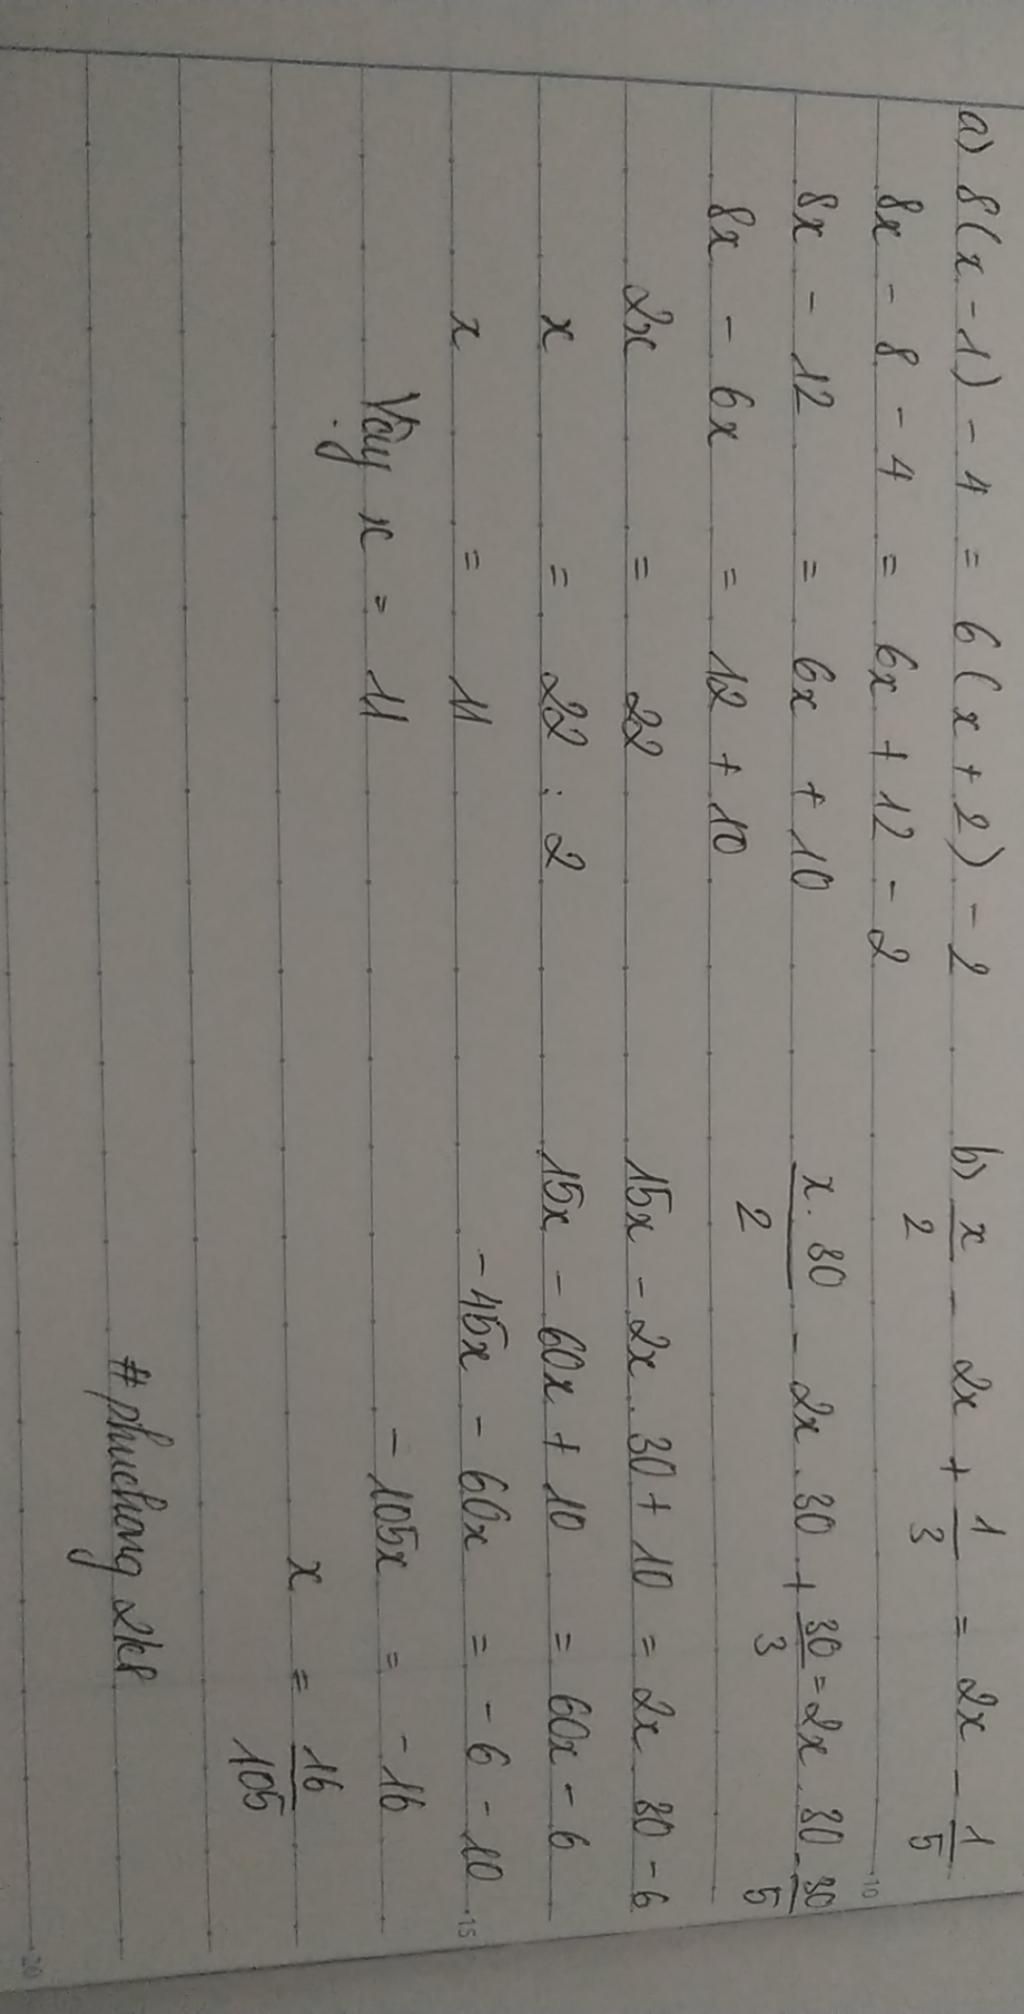 a) 8(x - 1) - 4 = 6(x + 2) - 2
8x - 8 - 4 = 6x + 12 - 2
8x - 12 = 6x + 10
8x - 6x = 12 + 10
2x = 22
x = 22 : 2
x = 11
Vậy x = 11
b) x/2 - 2x + 1/3 = 2x - 1/5
x.30/2 - 2x.30 + 30/3 = 2x.30 - 30/5
15x - 2x.30 + 10 = 2x 30 - 6
15x - 60x + 10 = 60x - 6
-45x - 60x = -6 - 10
-105x = -16
x = 16/105
#phuchong2k8
10
15
20